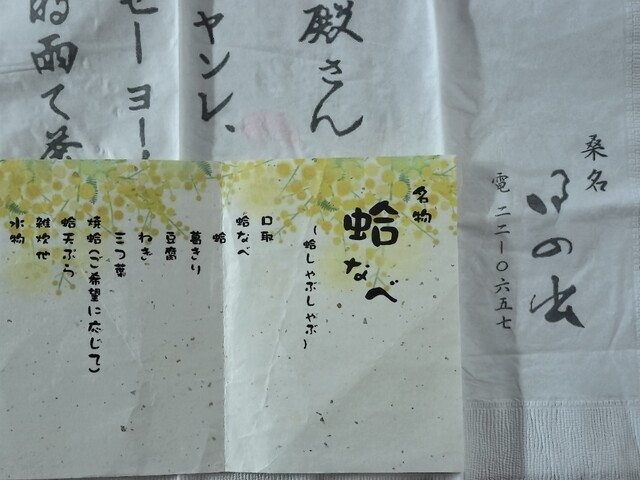 殿さん
ヤンレ、
セーヨー
時雨て茶
桑名
日の出
電 二二ー〇六五七
名物
蛤なべ
(蛤しゃぶしゃぶ)
口取
蛤なべ
蛤
葛きり
豆腐
ねぎ
三つ葉
焼蛤(ご希望に応じて)
蛤天ぷら
雑炊他
水物